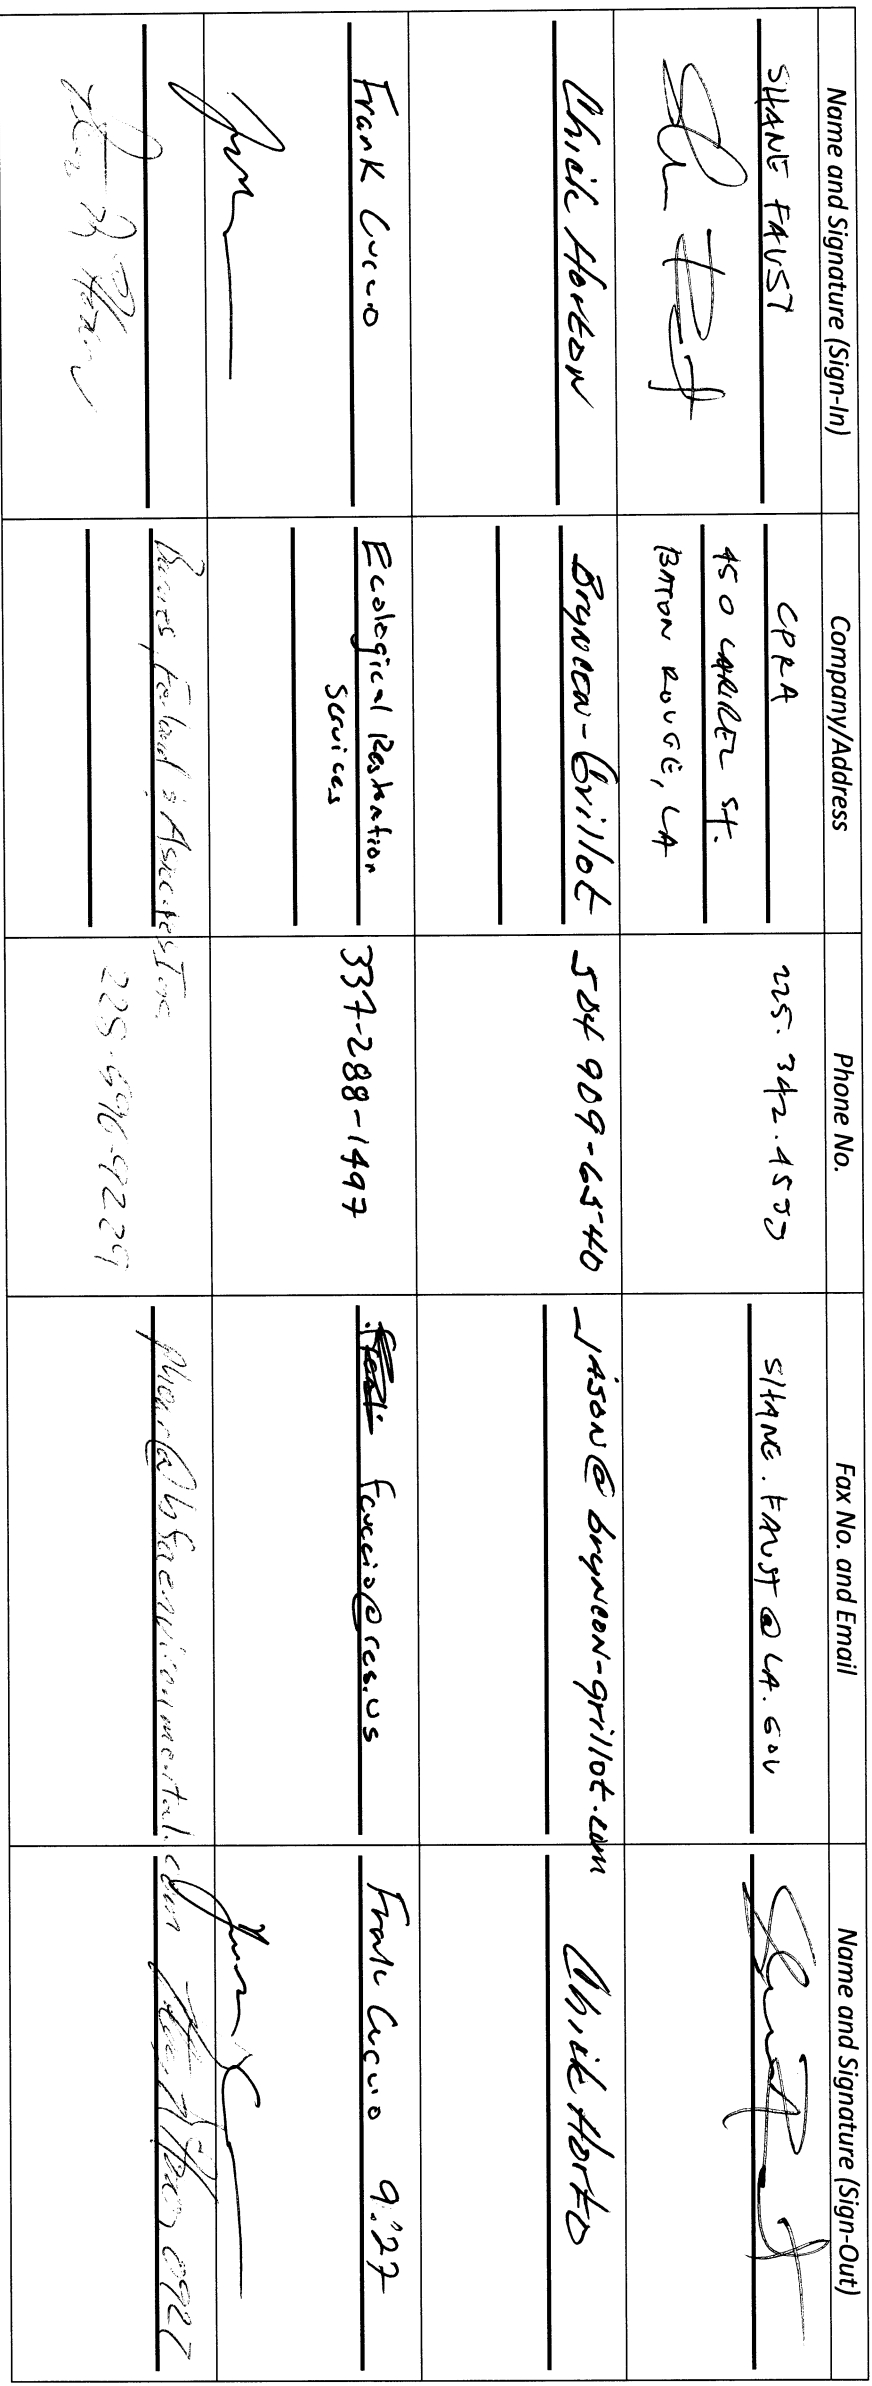 Name and Signature (Sign-In)
Company/Address
Phone No.
Fax No. and Email
Name and Signature (Sign-Out)
SHANE FAUST
CPRA
450 LAUREL St.
BATON ROUGE, LA
225. 342. 4500
SHANE.FAUST@LA.GOV
Chick Horton
504 909-6540
JASON@bryncon-grillot.com
Chick Horto
Frank Cuccio
Ecological Restoration
Services
337-288-1497
fcuccio@res.us
Frank Cuccio 9:27
& Associates Inc.
0927